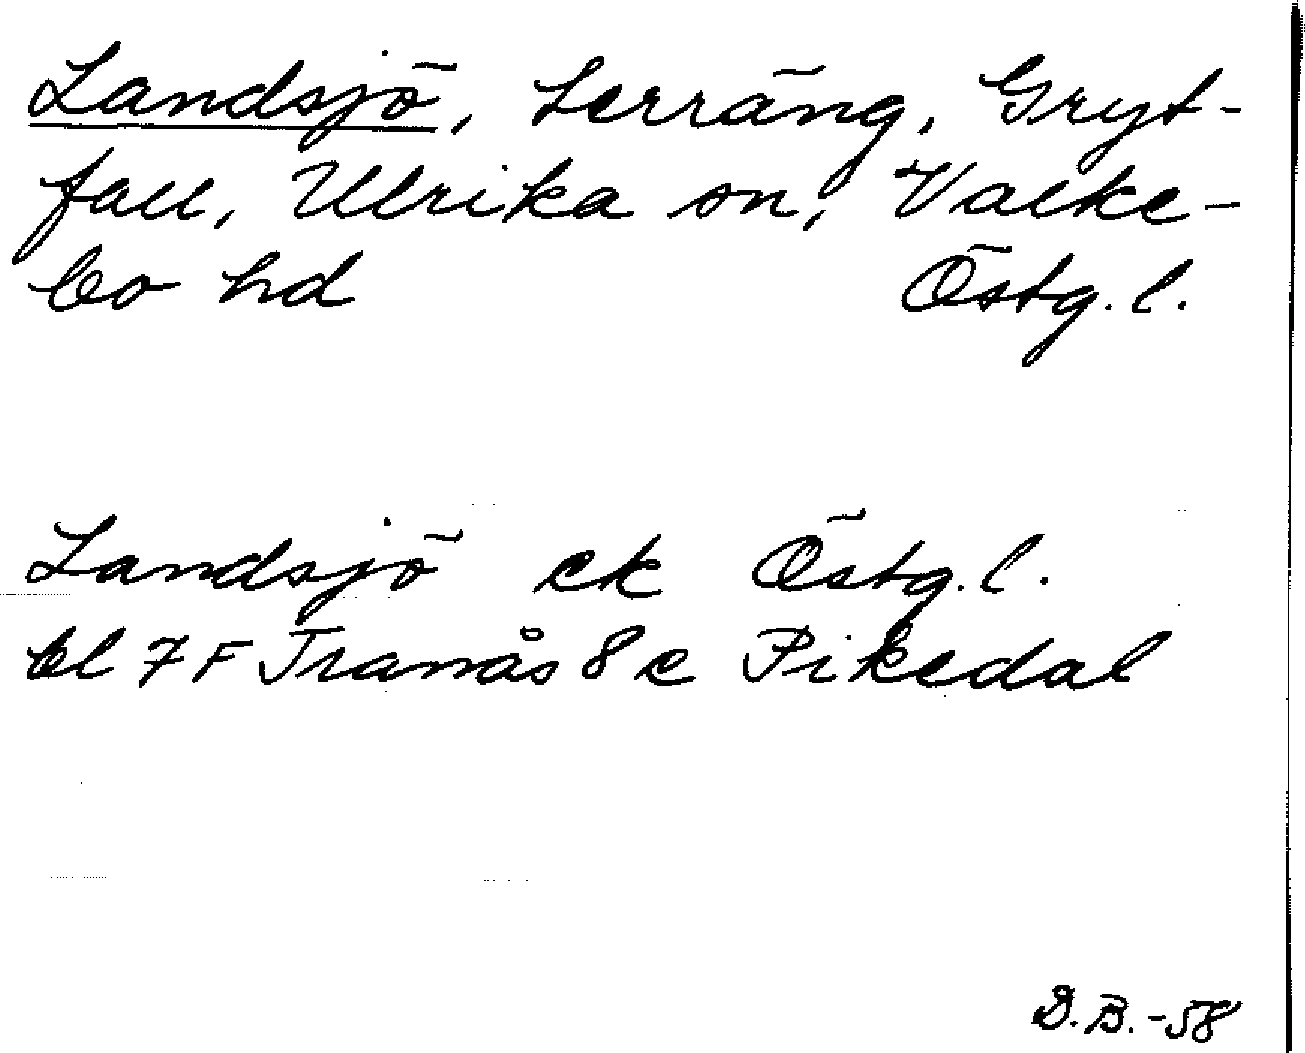 Landsjö, terräng, Gryt-
fall, Ulrika sn, Valke-
bo hd Östg. l.
Landsjö ek Östg. l.
bl 7 F Tranås 8 c Pikedal
D.B. -58